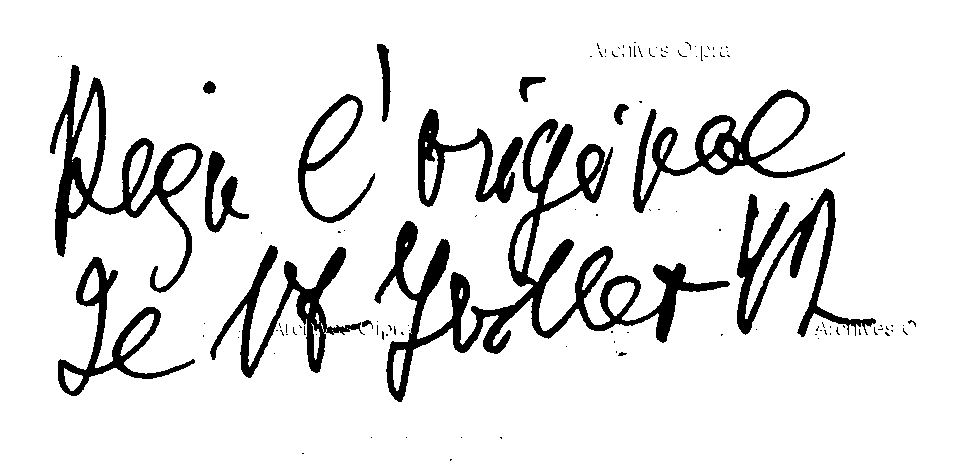 Archives Ofpra
Reçu l'original
Le 17 Juillet 72
Archives Ofpra
Archives O